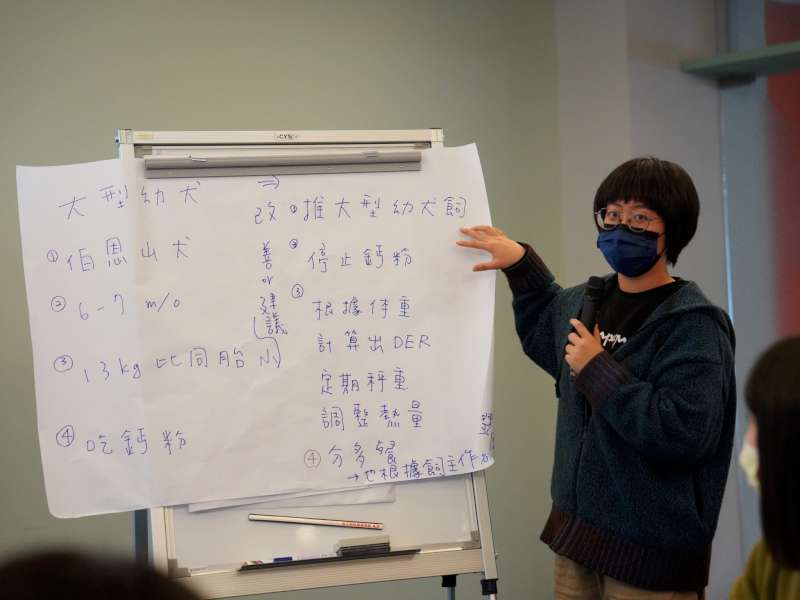 大型幼犬
① 伯恩山犬
② 6-7 m/o
③ 13kg 比同胎小
④ 吃鈣粉
⇒
改善or建議
① 推大型幼犬飼
② 停止鈣粉
③ 根據体重
計算出DER
定期秤重
調整熱量
④ 分多餐
→也根據飼主作